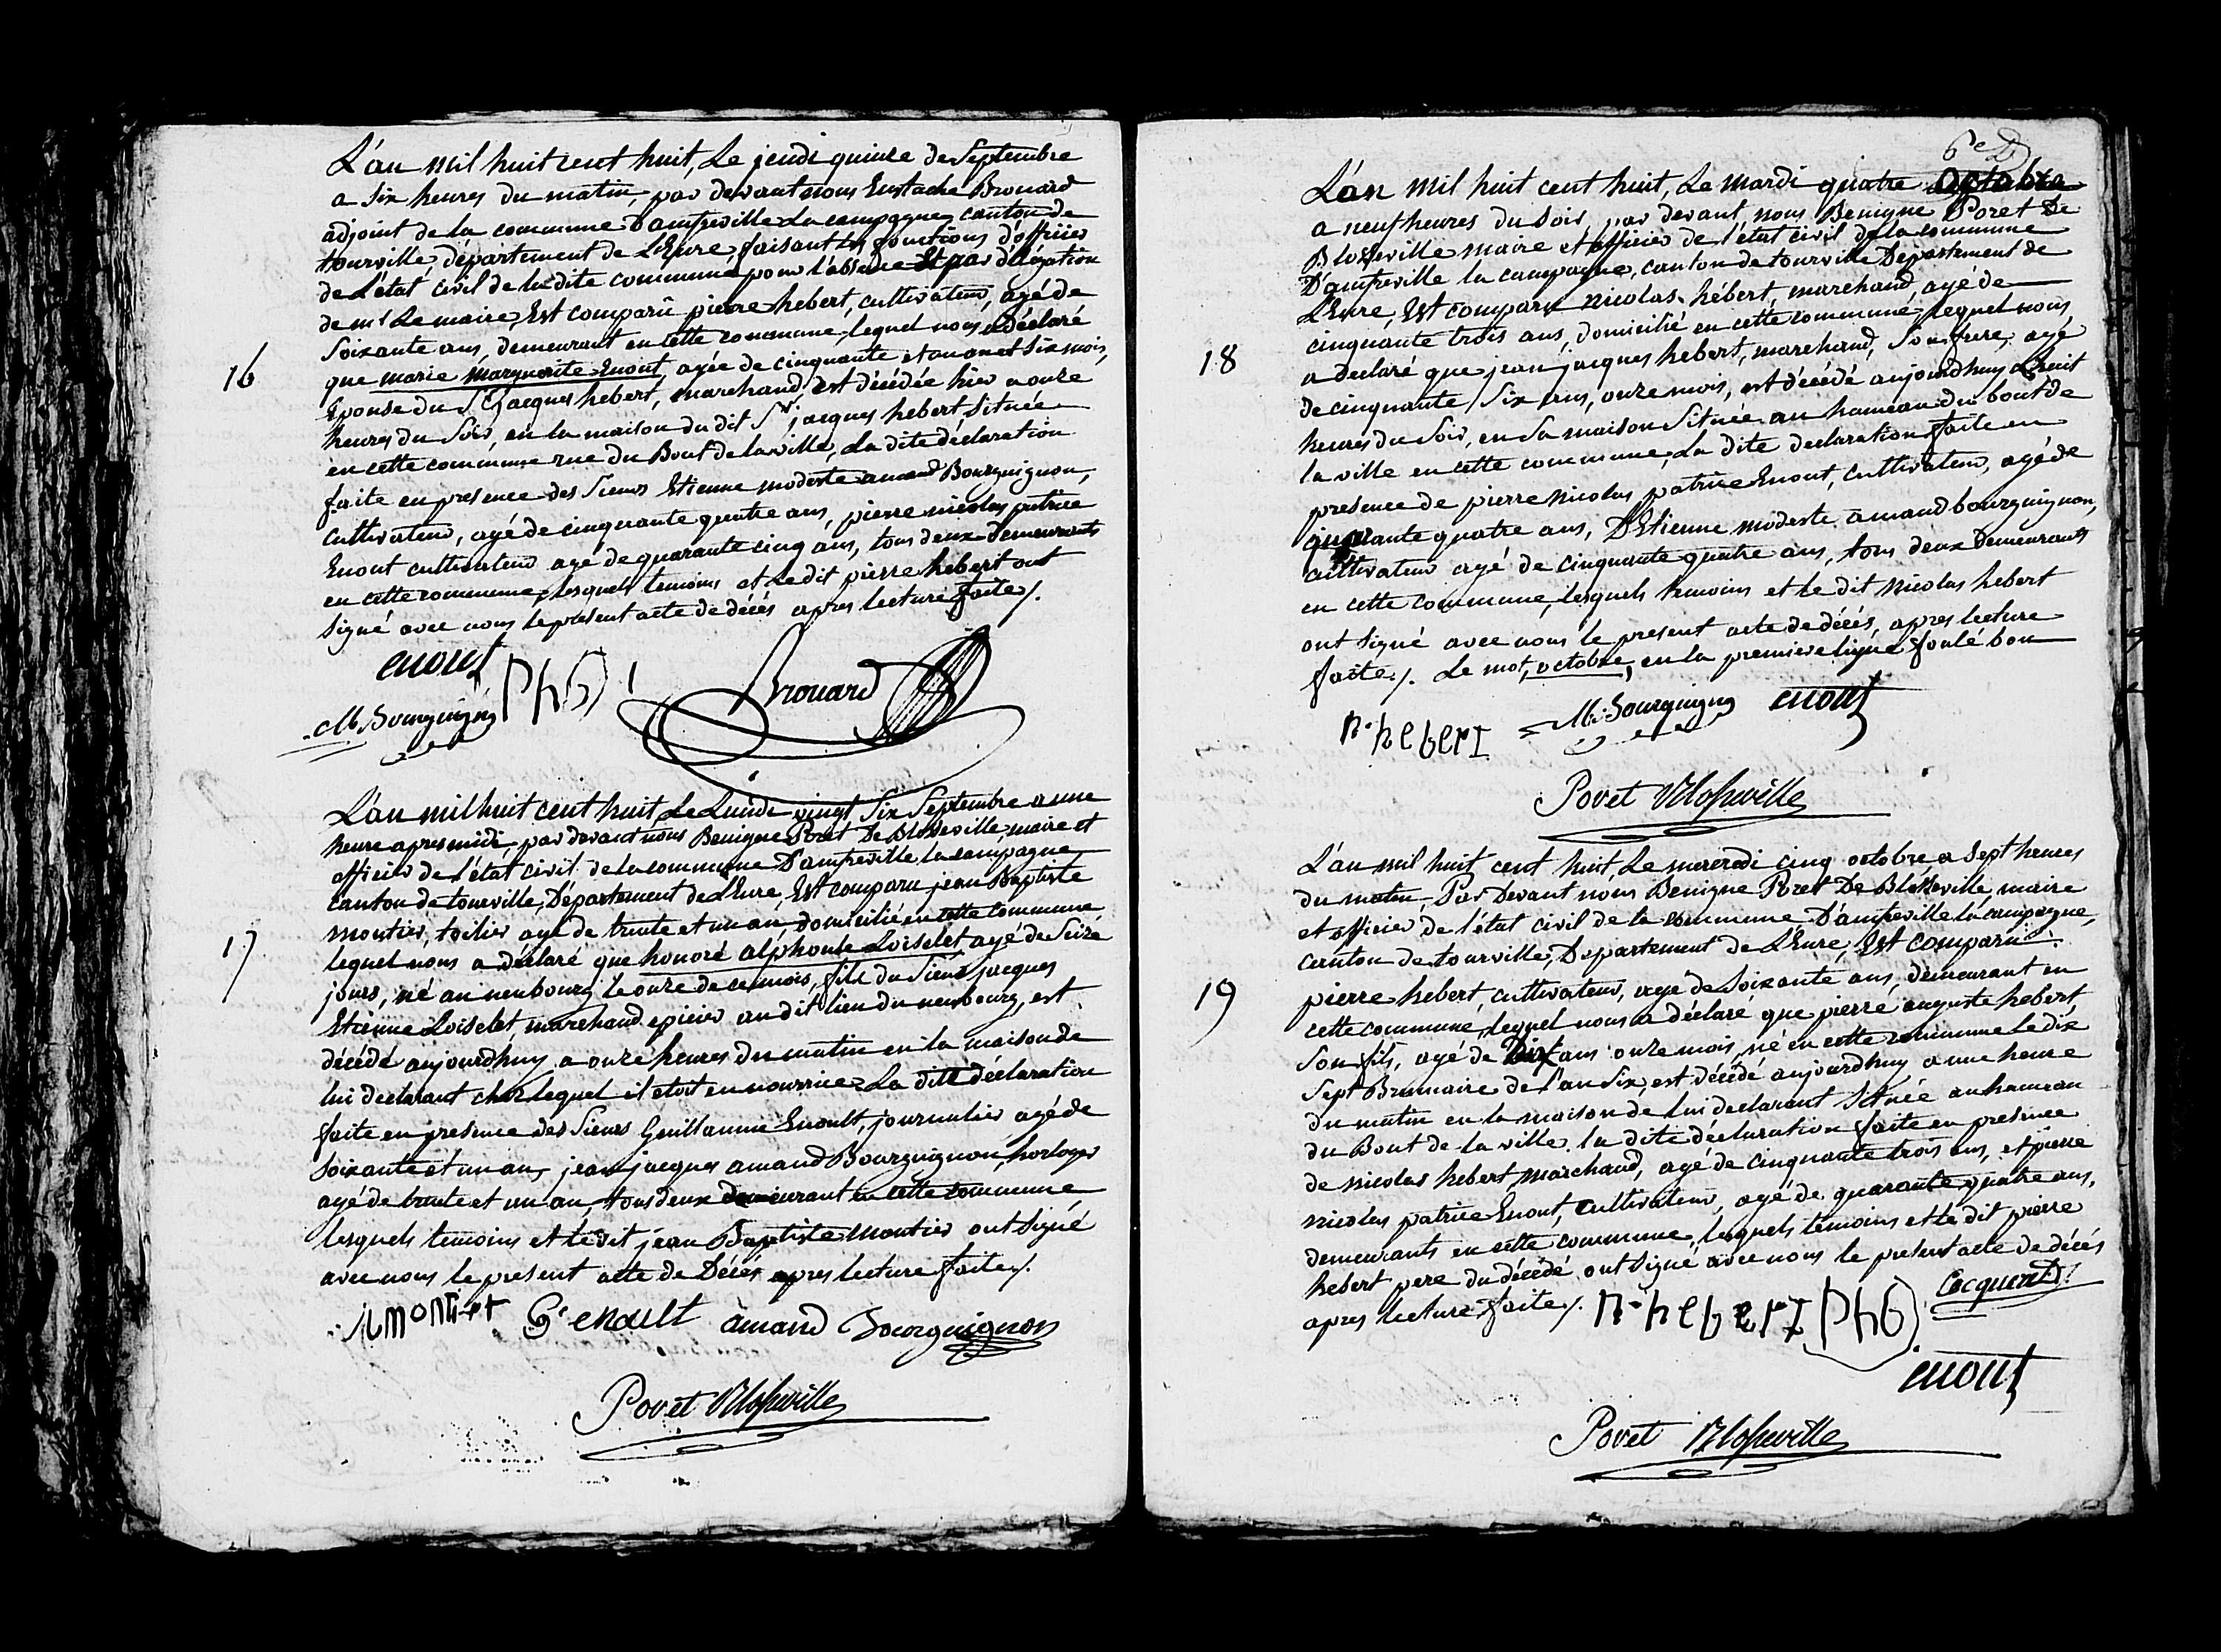 L'an mil huit cent huit, Le jeudi quinze de Septembre
a six heures du matin, par devant nous Eustache Brouard
adjoint de la commune d'amfreville La campagne, canton de
tourville département de L'Eure, faisant les fonctions d'officier
de L'état civil de la dite commune pour l'absence Et par délégation
de mr Le maire, Est comparû pierre hebert, cultivateur, agé de
Soixante ans, demeurant en cette commune, lequel nous a déclaré
16
que marie marguerite Enout, agée de cinquante et un an et six mois,
Epouse du Sr jacques hebert, marchand, est décédée hier a onze
heures du Soir, en la maison du dit Sr jacques hebert Située
en cette commune rue du Bout de la ville, La dite déclaration
faite en presence des Sieurs Etienne modeste amand Bourguignon,
cultivateur, agé de cinquante quatre ans, pierre nicolas patrice
Enout cultivateur agé de quarante cinq ans, tous deux demeurants
en cette commune, lesquels temoins et Le dit pierre hebert ont
signé avec nous le présent acte de décés apres lecture faite /.
enout
M. Bourguignon PhB Brouard
L'an mil huit cent huit, Le Lundi vingt Six Septembre a une
heure apres midi, par devant nous Benigne Poret De Blosseville, maire et
officier de l'état civil de la commune D'amfreville la campagne,
canton de tourville, Département de L'Eure, Est comparu jean Baptiste
montier, toilier agé de trente et un an, domicilié en cette commune,
17
lequel nous a déclaré que honoré alphonse Loiselet agé de Seize
jours, né au neubourg le onze de ce mois, fils du Sieur jacques
Etienne Loiselet marchand epicier au dit lieu du neubourg, est
décédé aujourd'huy a onze heures du matin en la maison de
lui declarant chez lequel il etoit en nourrice. La dite déclaration
faite en presence des Sieurs Guillaume Enoult, journalier agé de
soixante et un an, jean jacques amand Bourguignon, horloger
agé de trente et un an, tous deux demeurant en cette commune,
lesquels temoins et le dit jean Baptiste montier ont Signé
avec nous le present acte de Décés apres lecture faite /.
montier G. enault amand Bourguignon
Poret Blosseville
6e
L'an mil huit cent huit, Le mardi quatre octobre
a neuf heures du Soir, par devant nous Benigne Poret De
Blosseville maire et officier de l'état civil de la commune
D'amfreville la campagne, canton de tourville Département de
L'Eure, Est comparu nicolas hébert, marchand, agé de
cinquante trois ans, domicilié en cette commune, lequel nous
18
a declaré que jean jacques hebert, marchand, Son frere, agé
de cinquante Six ans, onze mois, est décédé aujourdhuy a huit
heures du Soir, en Sa maison Située au hameau du bout de
la ville en cette commune, La dite declaration faite en
presence de pierre nicolas patrice Enout, cultivateur, agé de
quarante quatre ans, D'Etienne modeste amand bourguignon,
cultivateur agé de cinquante quatre ans, tous deux Demeurants
en cette commune, lesquels temoins et le dit nicolas hebert
ont signé avec nous le present acte de décés, apres lecture
faite /. Le mot, octobre, en la premiere ligne foulé bon
n. hebert M. Bourguignon enout
Poret Blosseville
L'an mil huit cent huit, Le mercredi cinq octobre a Sept heures
du matin, Par Devant nous Benigne Poret De Blosseville, maire
et officier de l'état civil de la commune D'amfreville la campagne,
canton de tourville, Departement de L'Eure, Est comparu
19
pierre hebert, cultivateur, agé de Soixante ans, demeurant en
cette commune, lequel nous a déclaré que pierre auguste hebert,
Son fils, agé de Dix ans onze mois, né en cette commune le dix
Sept Brumaire de l'an Six, est décédé aujourdhuy a une heure
du matin en la maison de lui declarant Située au hameau
du Bout de la ville. la dite déclaration faite en presence
de nicolas hebert, marchand, agé de cinquante trois ans, et pierre
nicolas patrice Enout, cultivateur, agé de quarante quatre ans,
demeurants en cette commune, lesquels temoins et le dit pierre
hebert pere du décédé ont signé avec nous le present acte de décés
apres lecture faite /. n. hebert PhB Cocquerel
enout
Poret Blosseville